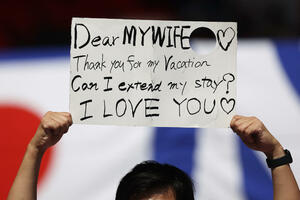 Dear MY WIFE ♡
Thank you for my Vacation
Can I extend my stay?
I LOVE YOU ♡